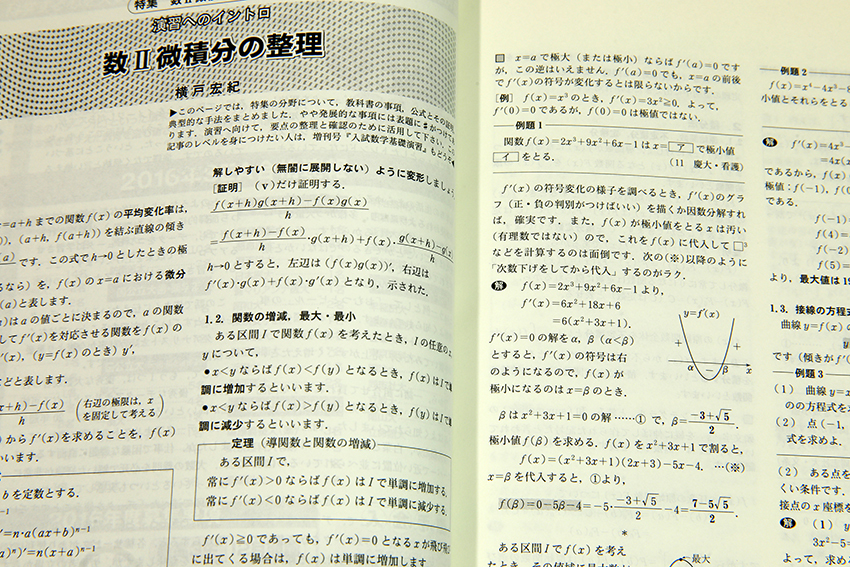 特集
演習へのイントロ
数Ⅱ微積分の整理
横戸宏紀
▶このページでは，特集の分野について，教科書の事項，公式とその証明
典型的な手法をまとめました．やや発展的な事項には表題に#がつけて
ります．演習へ向けて，要点の整理と確認のために活用して下さい．
記事のレベルを身につけたい人は，増刊号『入試数学基礎演習』もどう
=a+hまでの関数f(x)の平均変化率は，
)), (a+h, f(a+h))を結ぶ直線の傾き
です．この式でh→0としたときの極
るなら）を，f(x)のx=aにおける微分
(a)と表します．
)はaの値ごとに決まるので，aの関数
してf'(x)を対応させる関数をf(x)の
'(x), (y=f(x)のとき) y',
などと表します．
x+h)-f(x)/h （右辺の極限は，xを固定して考える）
)からf'(x)を求めることを，f(x)
いいます．
bを定数とする．
'=n・a(ax+b)^{n-1}
a)^n)'=n(x+a)^{n-1}
解しやすい（無闇に展開しない）ように変形しましょう．
［証明］ （ｖ）だけ証明する．
f(x+h)g(x+h)-f(x)g(x)/h
=f(x+h)-f(x)/h・g(x+h)+f(x)・g(x+h)-g(x)/h
h→0とすると，左辺は(f(x)g(x))'，右辺は
f'(x)・g(x)+f(x)・g'(x)となり，示された．
1.2. 関数の増減，最大・最小
ある区間Iで関数f(x)を考えたとき，Iの任意のx,
yについて，
●x<yならばf(x)<f(y)となるとき，f(x)はIで単
調に増加するといいます．
●x<yならばf(x)>f(y)となるとき，f(y)はIで単
調に減少するといいます．
定理（導関数と関数の増減）
ある区間Iで，
常にf'(x)>0ならばf(x)はIで単調に増加する．
常にf'(x)<0ならばf(x)はIで単調に減少する．
f'(x)≧0であっても，f'(x)=0となるxが飛び飛び
に出てくる場合は，f(x)は単調に増加します．
x=aで極大（または極小）ならばf'(a)=0です
が，この逆はいえません．f'(a)=0でも，x=aの前後
でf'(x)の符号が変化するとは限らないからです．
［例］ f(x)=x³のとき，f'(x)=3x²≧0．よって，
f'(0)=0であるが，f(0)=0は極値ではない．
例題1
関数f(x)=2x³+9x²+6x-1はx=ア で極小値
イ をとる．
（11 慶大・看護）
f'(x)の符号変化の様子を調べるとき，f'(x)のグラ
フ（正・負の判別がつけばいい）を描くか因数分解すれ
ば，確実です．また，f(x)が極小値をとるxは汚い
（有理数でない）ので，これをf(x)に代入して□³
などを計算するのは面倒です．次の（※）以降のように
「次数下げをしてから代入」するのがラク．
解 f(x)=2x³+9x²+6x-1より，
f'(x)=6x²+18x+6
=6(x²+3x+1)．
f'(x)=0の解をα, β (α<β)
とすると，f'(x)の符号は右
のようになるので，f(x)が
極小になるのはx=βのとき．
y=f'(x)
+ +
α − β x
βはx²+3x+1=0の解……① で，β=-3+√5/2．
極小値f(β)を求める．f(x)をx²+3x+1で割ると，
f(x)=(x²+3x+1)(2x+3)-5x-4．…（※）
x=βを代入すると，①より，
f(β)=0-5β-4=-5・-3+√5/2-4=7-5√5/2．
*
ある区間Iでf(x)を考え
最大
例題2
f(x)=x⁴-4x³-8
小値とそれらをとる
解 f'(x)=4x³-
=4x(x
であるから，f(x)
極値：f(-1), f(0)
である．
f(-1)=
f(4)=
f(-2)=
f(5)=
より，最大値は19
1.3. 接線の方程式
曲線y=f(x)の
です（傾きがf'(
例題3
(1) 曲線y=x
のの方程式を求
(2) 点(-1,
式を求めよ．
(2) ある点を
くい条件です．
接点のx座標を
解 (1) y'=
3x²-5=
よって，求める